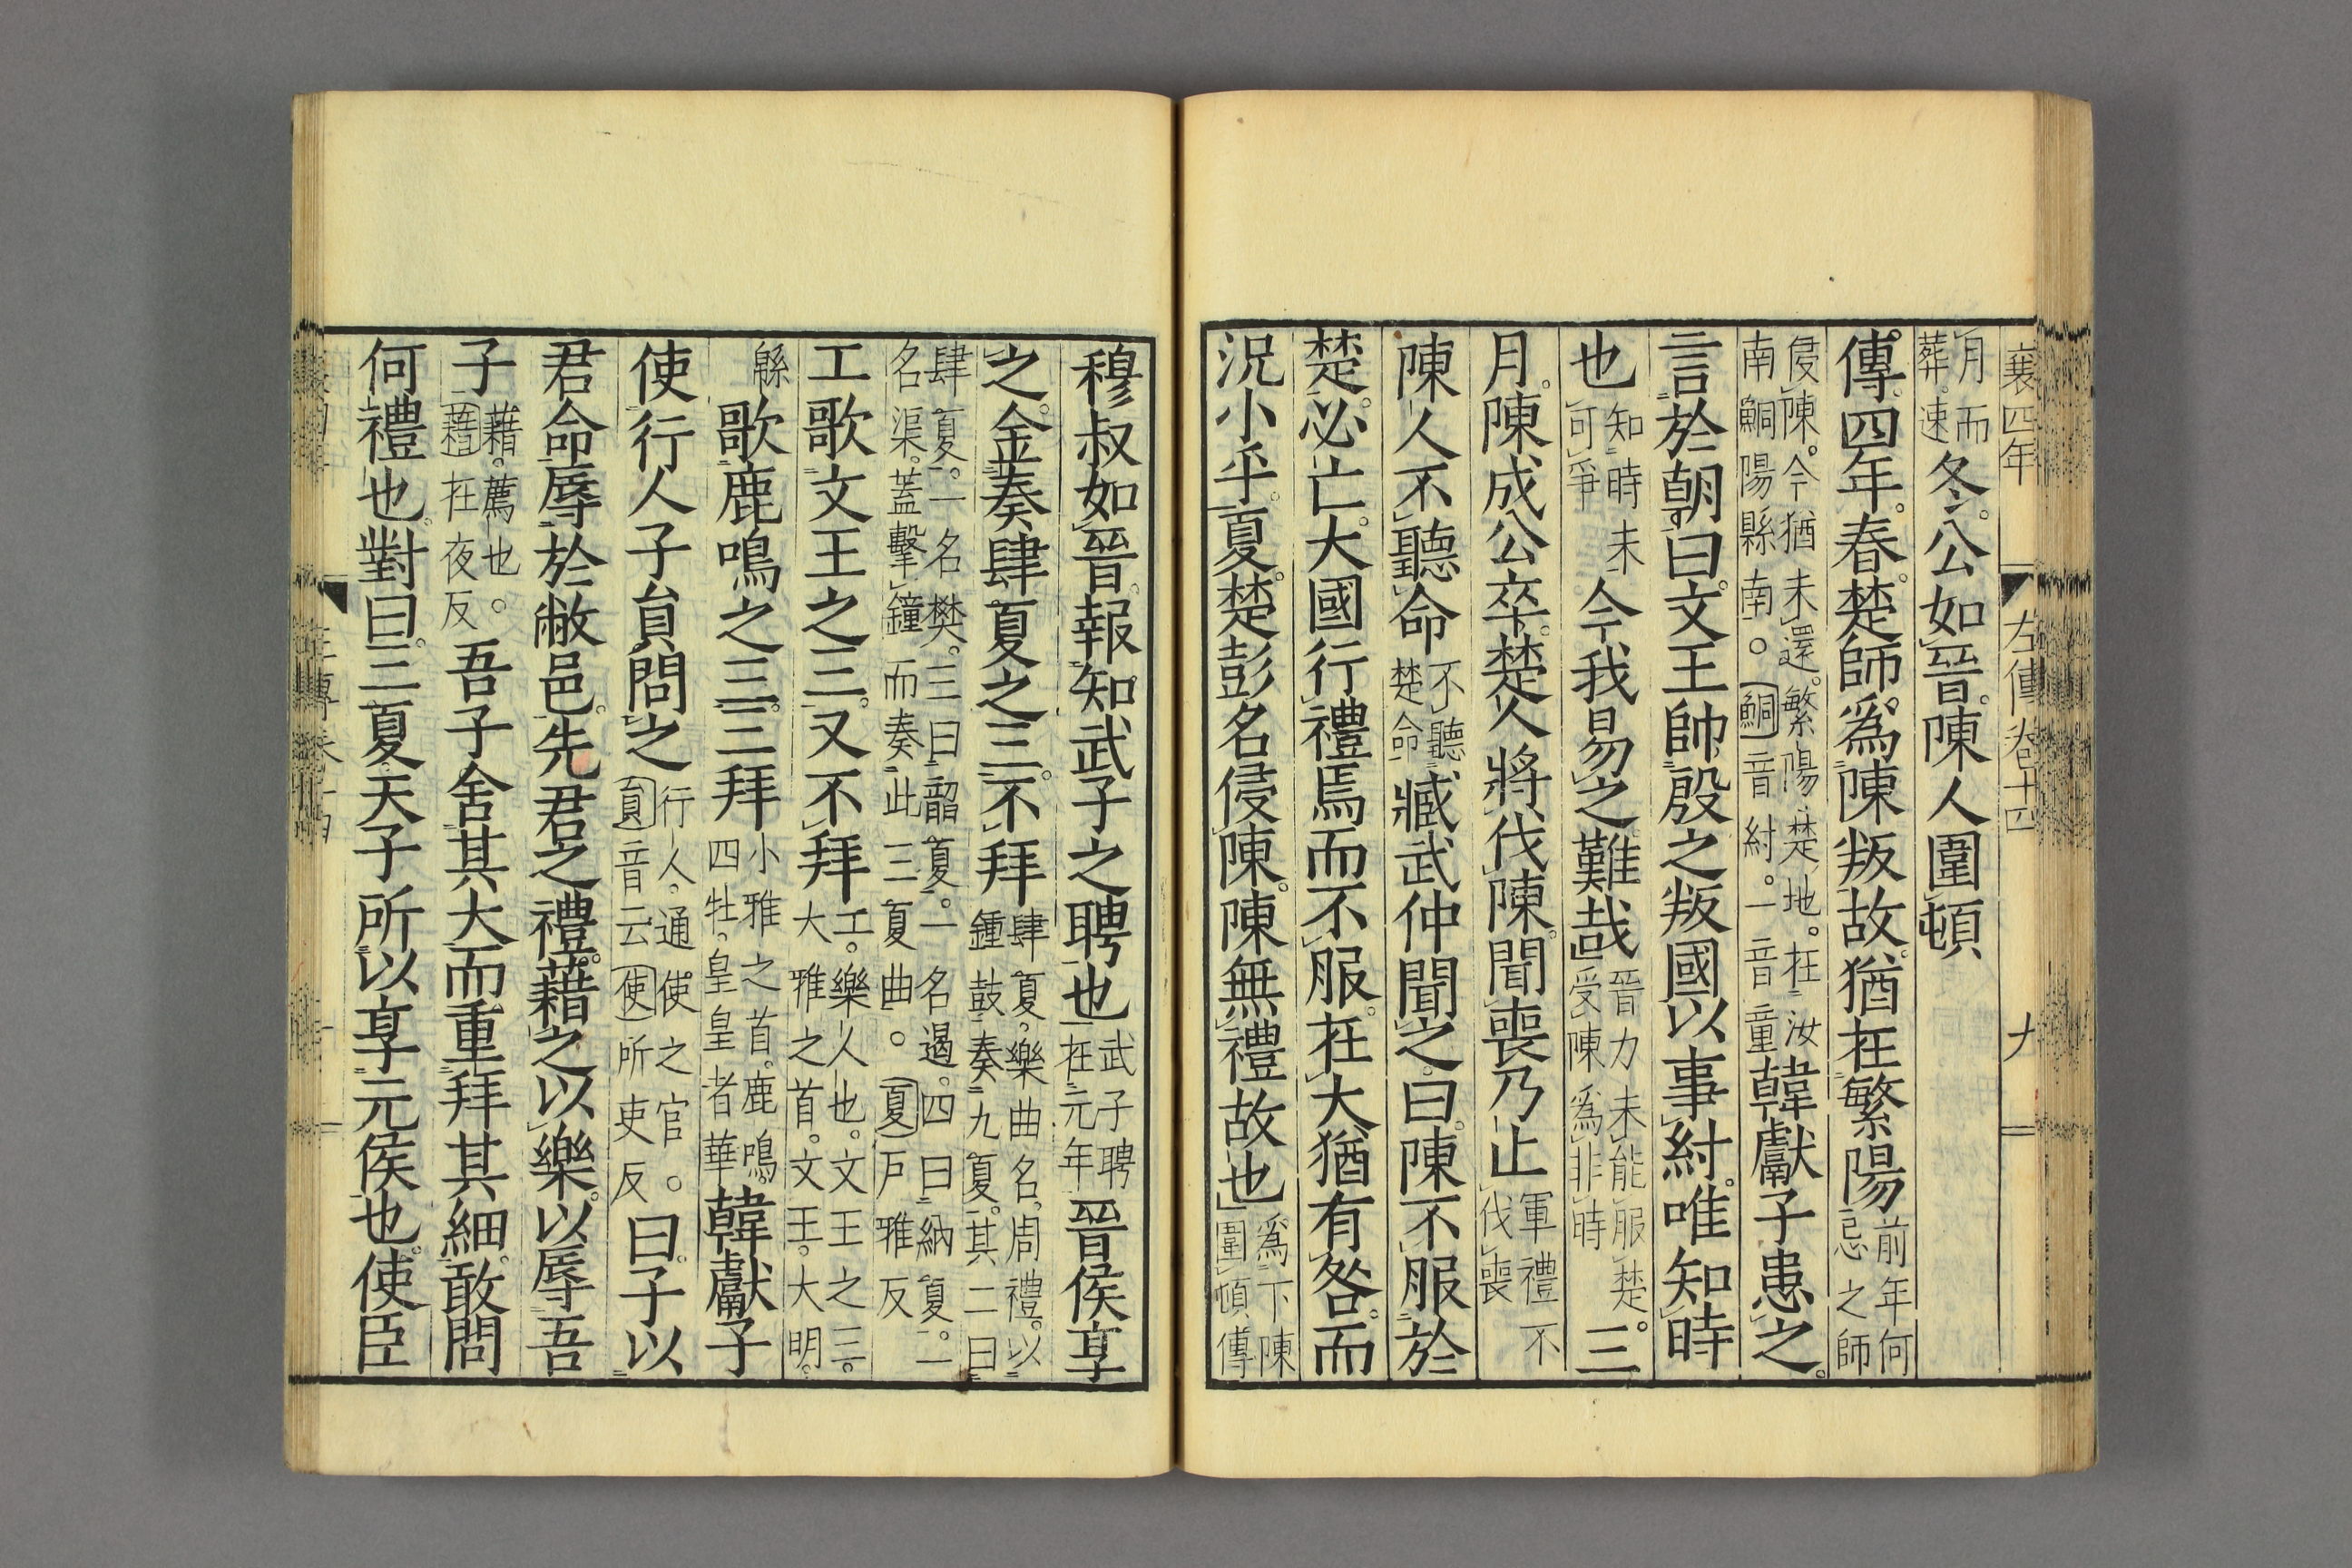 襄四年 左傳卷十四 九
月而葬。速冬。公如晉。陳人圍頓
傳。四年。春。楚師爲陳叛故。猶在繁陽前年何忌之師
侵陳。今猶未還。繁陽。楚地。在汝南鮦陽縣南。○鮦音紂。一音童韓獻子患之。
言於朝曰。文王帥殷之叛國以事紂。唯知時
也知時未可爭今我易之難哉晉力未能服楚。受陳爲非時三
月。陳成公卒。楚人將伐陳。聞喪乃止軍禮不伐喪
陳人不聽命不聽楚命臧武仲聞之。曰。陳不服於
楚。必亡。大國行禮焉而不服。在大猶有咎。而
況小乎。夏。楚彭名侵陳。陳無禮故也爲下陳圍頓傳
穆叔如晉。報知武子之聘也武子聘在元年晉侯享
之。金奏肆夏之三。不拜肆夏。樂曲名。周禮。以鍾鼓奏九夏。其二曰
肆夏。一名樊。三曰韶夏。一名遏。四曰納夏。一名渠。蓋擊鐘而奏此三夏曲。○夏戶雅反
工歌文王之三。又不拜工。樂人也。文王之三。大雅之首。文王。大明。
緜歌鹿鳴之三。三拜小雅之首。鹿鳴。四牡。皇皇者華韓獻子
使行人子員問之行人。通使之官。○員音云使所吏反曰。子以
君命辱於敝邑。先君之禮。藉之以樂。以辱吾
子藉。薦也。○藉在夜反吾子舍其大而重拜其細。敢問
何禮也。對曰。三夏天子所以享元侯也。使臣